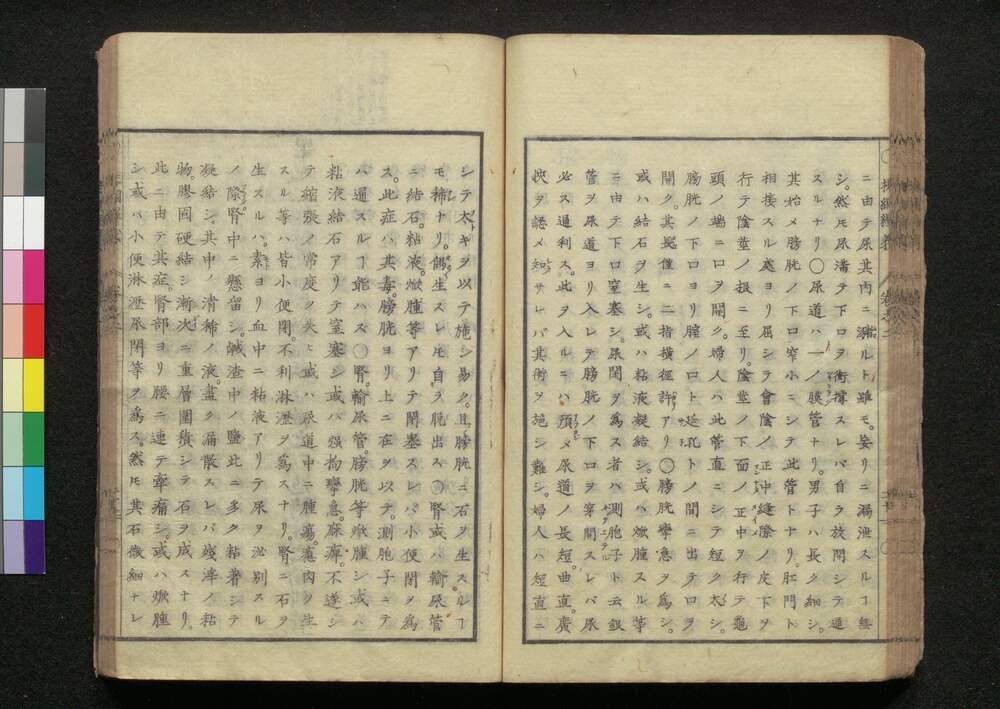 ニ由テ尿其内ニ溺ルト雖モ。妄リニ漏泄スルヿ無
シ。然モ尿滿テ下口ヲ衝撑スレバ自ラ放開シテ通
スルナリ〇尿道ハ一ノ膜管ナリ。男子ハ長ク細シ。
其始メ膀胱ノ下口窄小ニシテ此管トナリ。肛門ト
相接スル處ヨリ屈シテ會陰ノ正中縫際ノ皮下ヲ
行テ陰莖ノ根ニ至リ。陰莖ノ下面ノ正中ヲ行テ龜
頭ノ端ニ口ヲ開ク。婦人ハ此管直ニシテ短ク太シ。
膀胱ノ下口ヨリ膣ノ口ト挺孔トノ間ニ出テ口ヲ
開ク。其長僅ニ二指橫徑許アリ〇膀胱攣急ヲ爲シ。
或ハ結石ヲ生シ。或ハ粘液凝結シ。或ハ焮腫スル等
ニ由テ下口窒塞シ。尿閉ヲ爲ス者ハ測胞子ト云銀
管ヲ尿道ヨリ入レテ膀胱ノ下口ヲ穿開スレバ尿
必ス通利ス。此ヲ入ルニハ預メ尿道ノ長短。曲直。廣
狹ヲ認メ知サレバ其術ヲ施シ難シ。婦人ハ短直ニ
シテ太キヲ以テ施シ易ク。且膀胱ニ石ヲ生スルヿ
モ稀ナリ。偶生スレモ自ラ脱出ス〇腎或ハ輸尿管
ニ結石。粘液。焮腫等アリテ閉塞スレバ小便閉ヲ爲
ス。此症ハ其毒。膀胱ヨリ上ニ在ヲ以テ。測胞子ニテ
ハ通スルヿ能ハズ〇腎。輸尿管。膀胱等焮腫シ或ハ
粘液結石アリテ窒塞シ或ハ强拘攣急。麻痺。不遂シ
テ縮張ノ常度ヲ失ヒ或ハ尿道中ニ腫瘍。瘜肉ヲ生
スル等ハ皆小便閉。不利淋瀝ヲ爲スナリ。腎ニ石ヲ
生スルハ。素ヨリ血中ニ粘液アリテ尿ヲ泌別スル
ノ際。腎中ニ懸留シ。鹹渣中ノ鹽此ニ多ク粘著シテ
凝結シ。其中ノ淸稀ノ液。盡ク漏散スレバ殘滓ノ粘
物。膠固硬結シ漸次ニ重層團積シテ石ヲ成スナリ。
此ニ由テ其症。腎部ヨリ腰ニ連テ牽痛シ。或ハ焮腫
シ或ハ小便淋瀝尿閉等ヲ爲ス。然モ其石微細ナレ